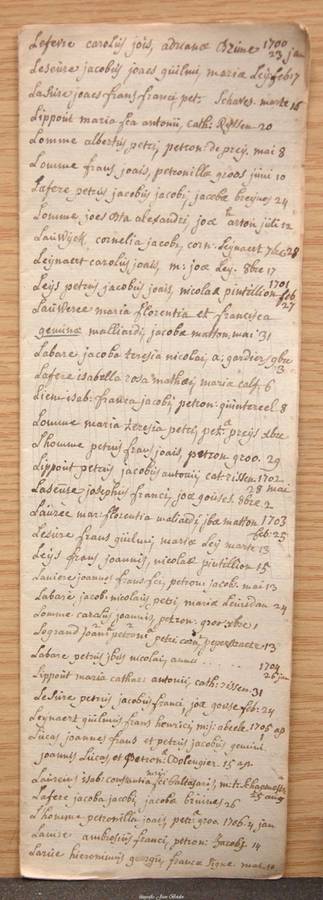 Lefevre carolus jois, adriana Brime 1700 23 jan
Lesure jacobus joaes guilmi, maria Leÿ feb 17
Lasure joaes frans franci, pet: Schaves. marte 16
Lippout maria fca antonii, cath: Rÿssen 20
Lomme albertus petri, petron: de preÿ. mai 8
Lomme frans joais, petronilla groos juni 10
Lafere petrus jacobus jacobi, jacoba breyne, 24
Lomme, joes bta alexandri, joa arton juli 12
Lauwÿck, cornelia jacobi, corn: Leÿnaert 7bre 28
Leÿnaert carolus joais, m: joa Leÿ. 8bre 17
Leÿs petrus jacobus joais, nicolaa pintillion 1701 feb 27
Lauweree maria florentia et francisca
geminæ malliardi, jacoba matton, mai 31
Labare jacoba teresia nicolai, a: gardier, 9bre 13
Lafere isabella rosa mathæi, maria calf. 6
Liem isab: franca jacobi, petron: quintereel 8
Lomme maria teresia petri, pet: preÿs xbre
Lhomme petrus frans joais, petron groo. 29
Lippout petrus jacobus antonii, cat: rissen. 1702 28 mai
Laseure josephus franci, joa gouses. 8bre 2
Lauree mar: florentia maliardi jba matton 1703 feb: 25
Lesure frans guilmi, maria Leÿ marte 13
Leÿs frans joannis, nicolaa pintillion 15
Laniere joannes frans fci, petron: jacobi. mai 13
Labare jacob: nicolaus petri, maria Leursdan 24
Lomme carolus joannis, petron: groo xbre 1
Legrand petri 13
Labare petrus jbus nicolai, anna . . . . . 1704 26 jan
Lippout maria cathar: antonii, cath: rissen. 31
Lesure petrus jacobus franci, joa gouse feb: 24
Leynaert guilmus frans henrici, mj: abeele 1705 ap 1
Lucas joannes frans et petrus jacobus gemini
joannis Lucas, et Petron: Dolengier. 15 ap
Laureus isab: constantia balthasaris, m: t: Schapmans 25 aug
Lafere jacoba jacobi, jacoba bruines 26
L'homme petronilla joais, pet: groa 1706. 4 jan
Lauire ambrosius franci, petron: Jacobs. 14
Larue hieronimus georgii, franca signe mai 10